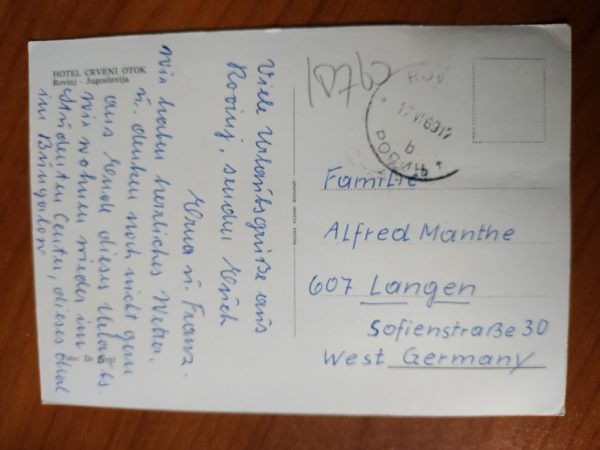 HOTEL CRVENI OTOK
Rovinj - Jugoslavija
Viele Urlaubsgrüße aus
Rovinj, senden Euch
Erna u. Franz.
Wir haben herrliches Wetter.
u. denken noch nicht gern
ans Ende dieses Urlaubs.
Wir wohnen wieder im
Studenten Center, dieses Mal
im Bungalow
Foto: Dr
17 VI 69 17
b
Familie
Alfred Manthe
607 Langen
Sofienstraße 30
West Germany